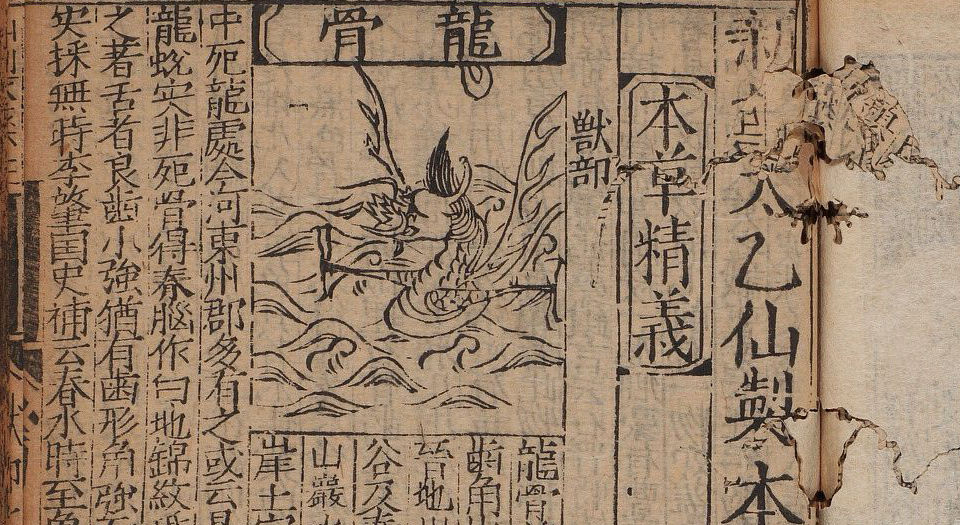 太乙仙製本
本草精義
獸部
龍骨
龍骨
齒角
晉地
谷及
山巖水
崖土穴
中死龍處今河東州郡多有之或云是
龍蛻實非死骨得春腦作白地錦紋
之者舌者良齒小強猶有齒形角強
史採無時李肇国史補云春水時至魚